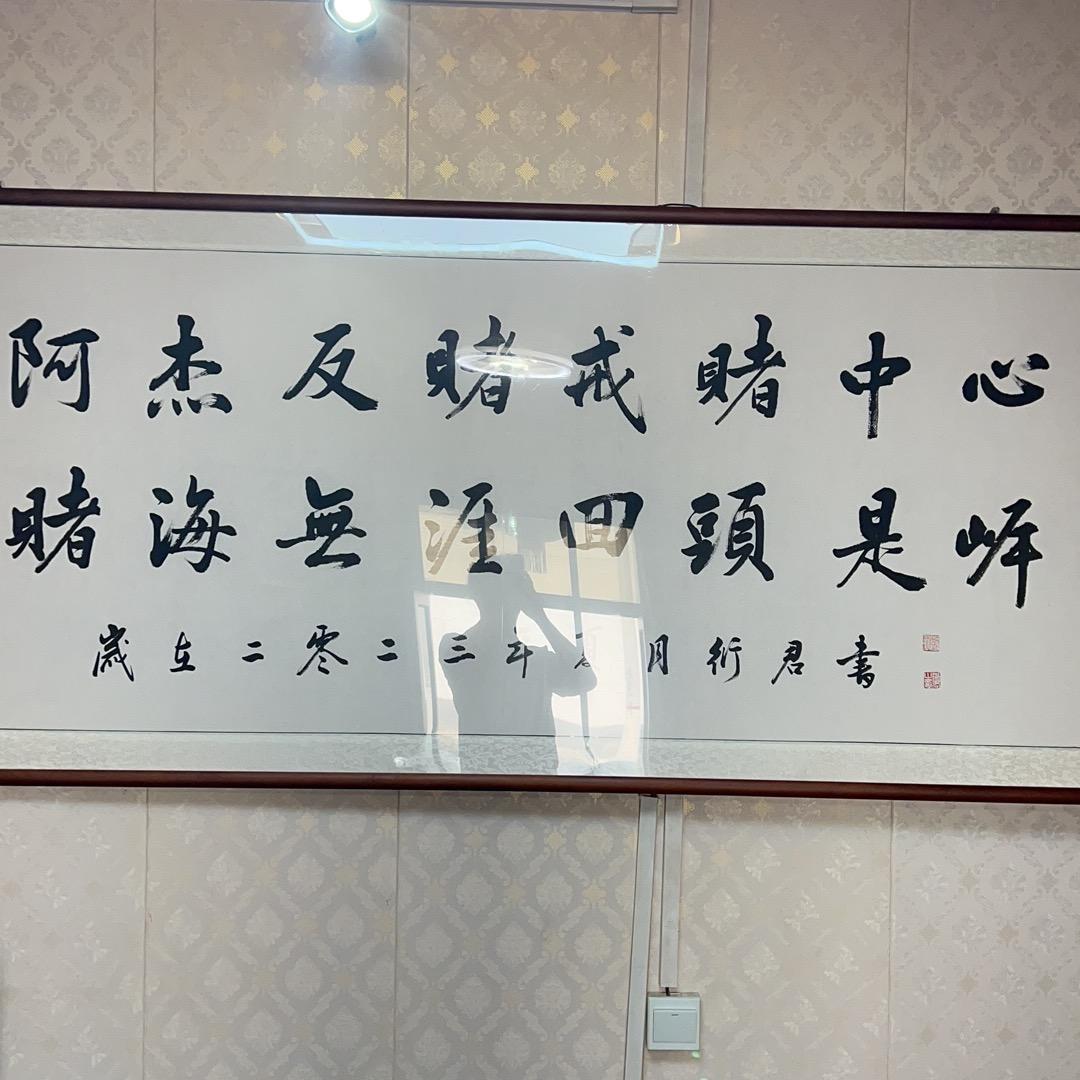 阿杰反賭戒賭中心
賭海無涯回頭是岸
歲在二零二三年夏月衍君書